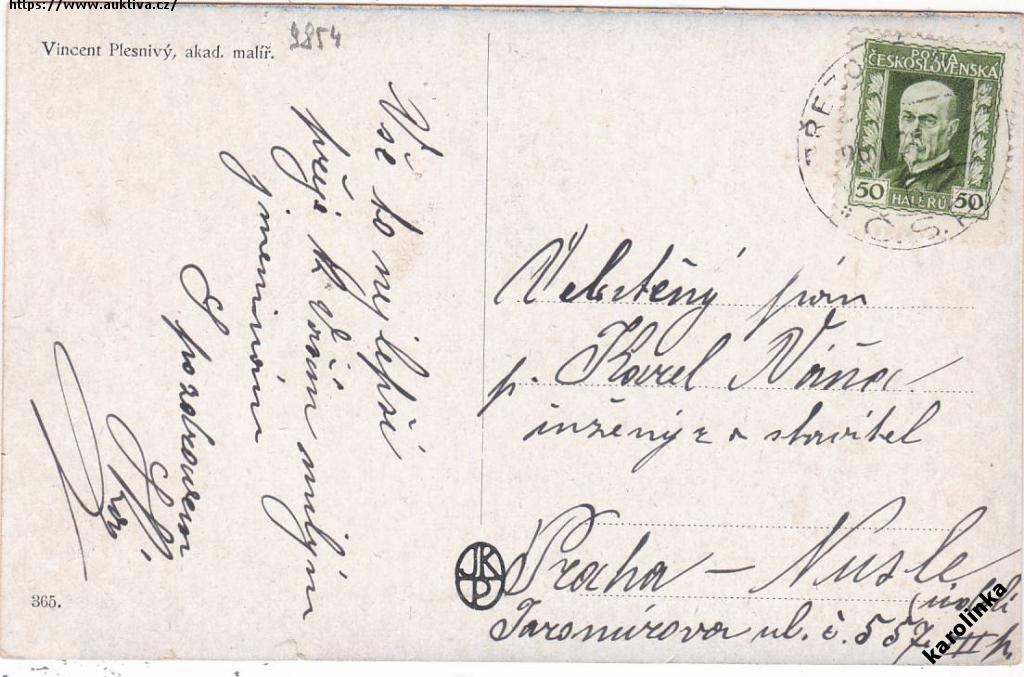 https://www.auktiva.cz/
Vincent Plesnivý, akad. malíř.
9854
Vše to nejlepší
přeji k Vašim milým
jmeninám
S pozdravem
POŠTA
ČESKOSLOVENSKÁ
50 HALÉŘŮ 50
Č.S.
Velectěný pán
p. Karel Váňa
inženýr a stavitel
Praha – Nusle
Jaromírova ul. č. 557. II p.
JKP
365.
karolinka